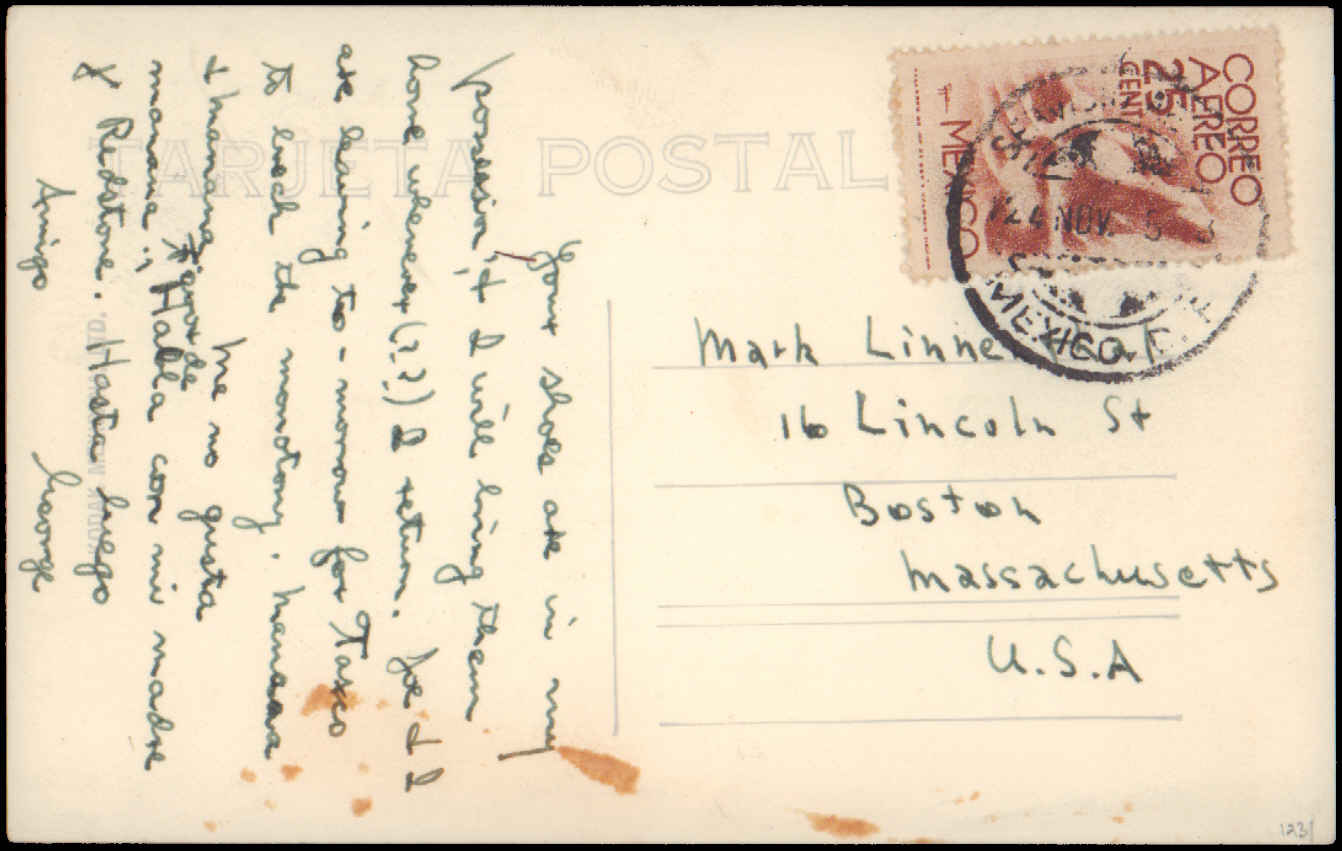 TARJETA POSTAL
CORREO
AEREO
25
CENT
MEXICO
24 NOV. 5
MEXICO
Your shoes are in my
possesion, & I will bring them
home whenever (??) I return. Joe & I
are leaving to-morrow for Taxco
to break the monotony. Manana
& manana me no gusta
manana; Habla con mi madre
y Redstone. Hasta luego
Amigo
George
Mark
16 Lincoln St
Boston
Massachusetts
U.S.A
1231